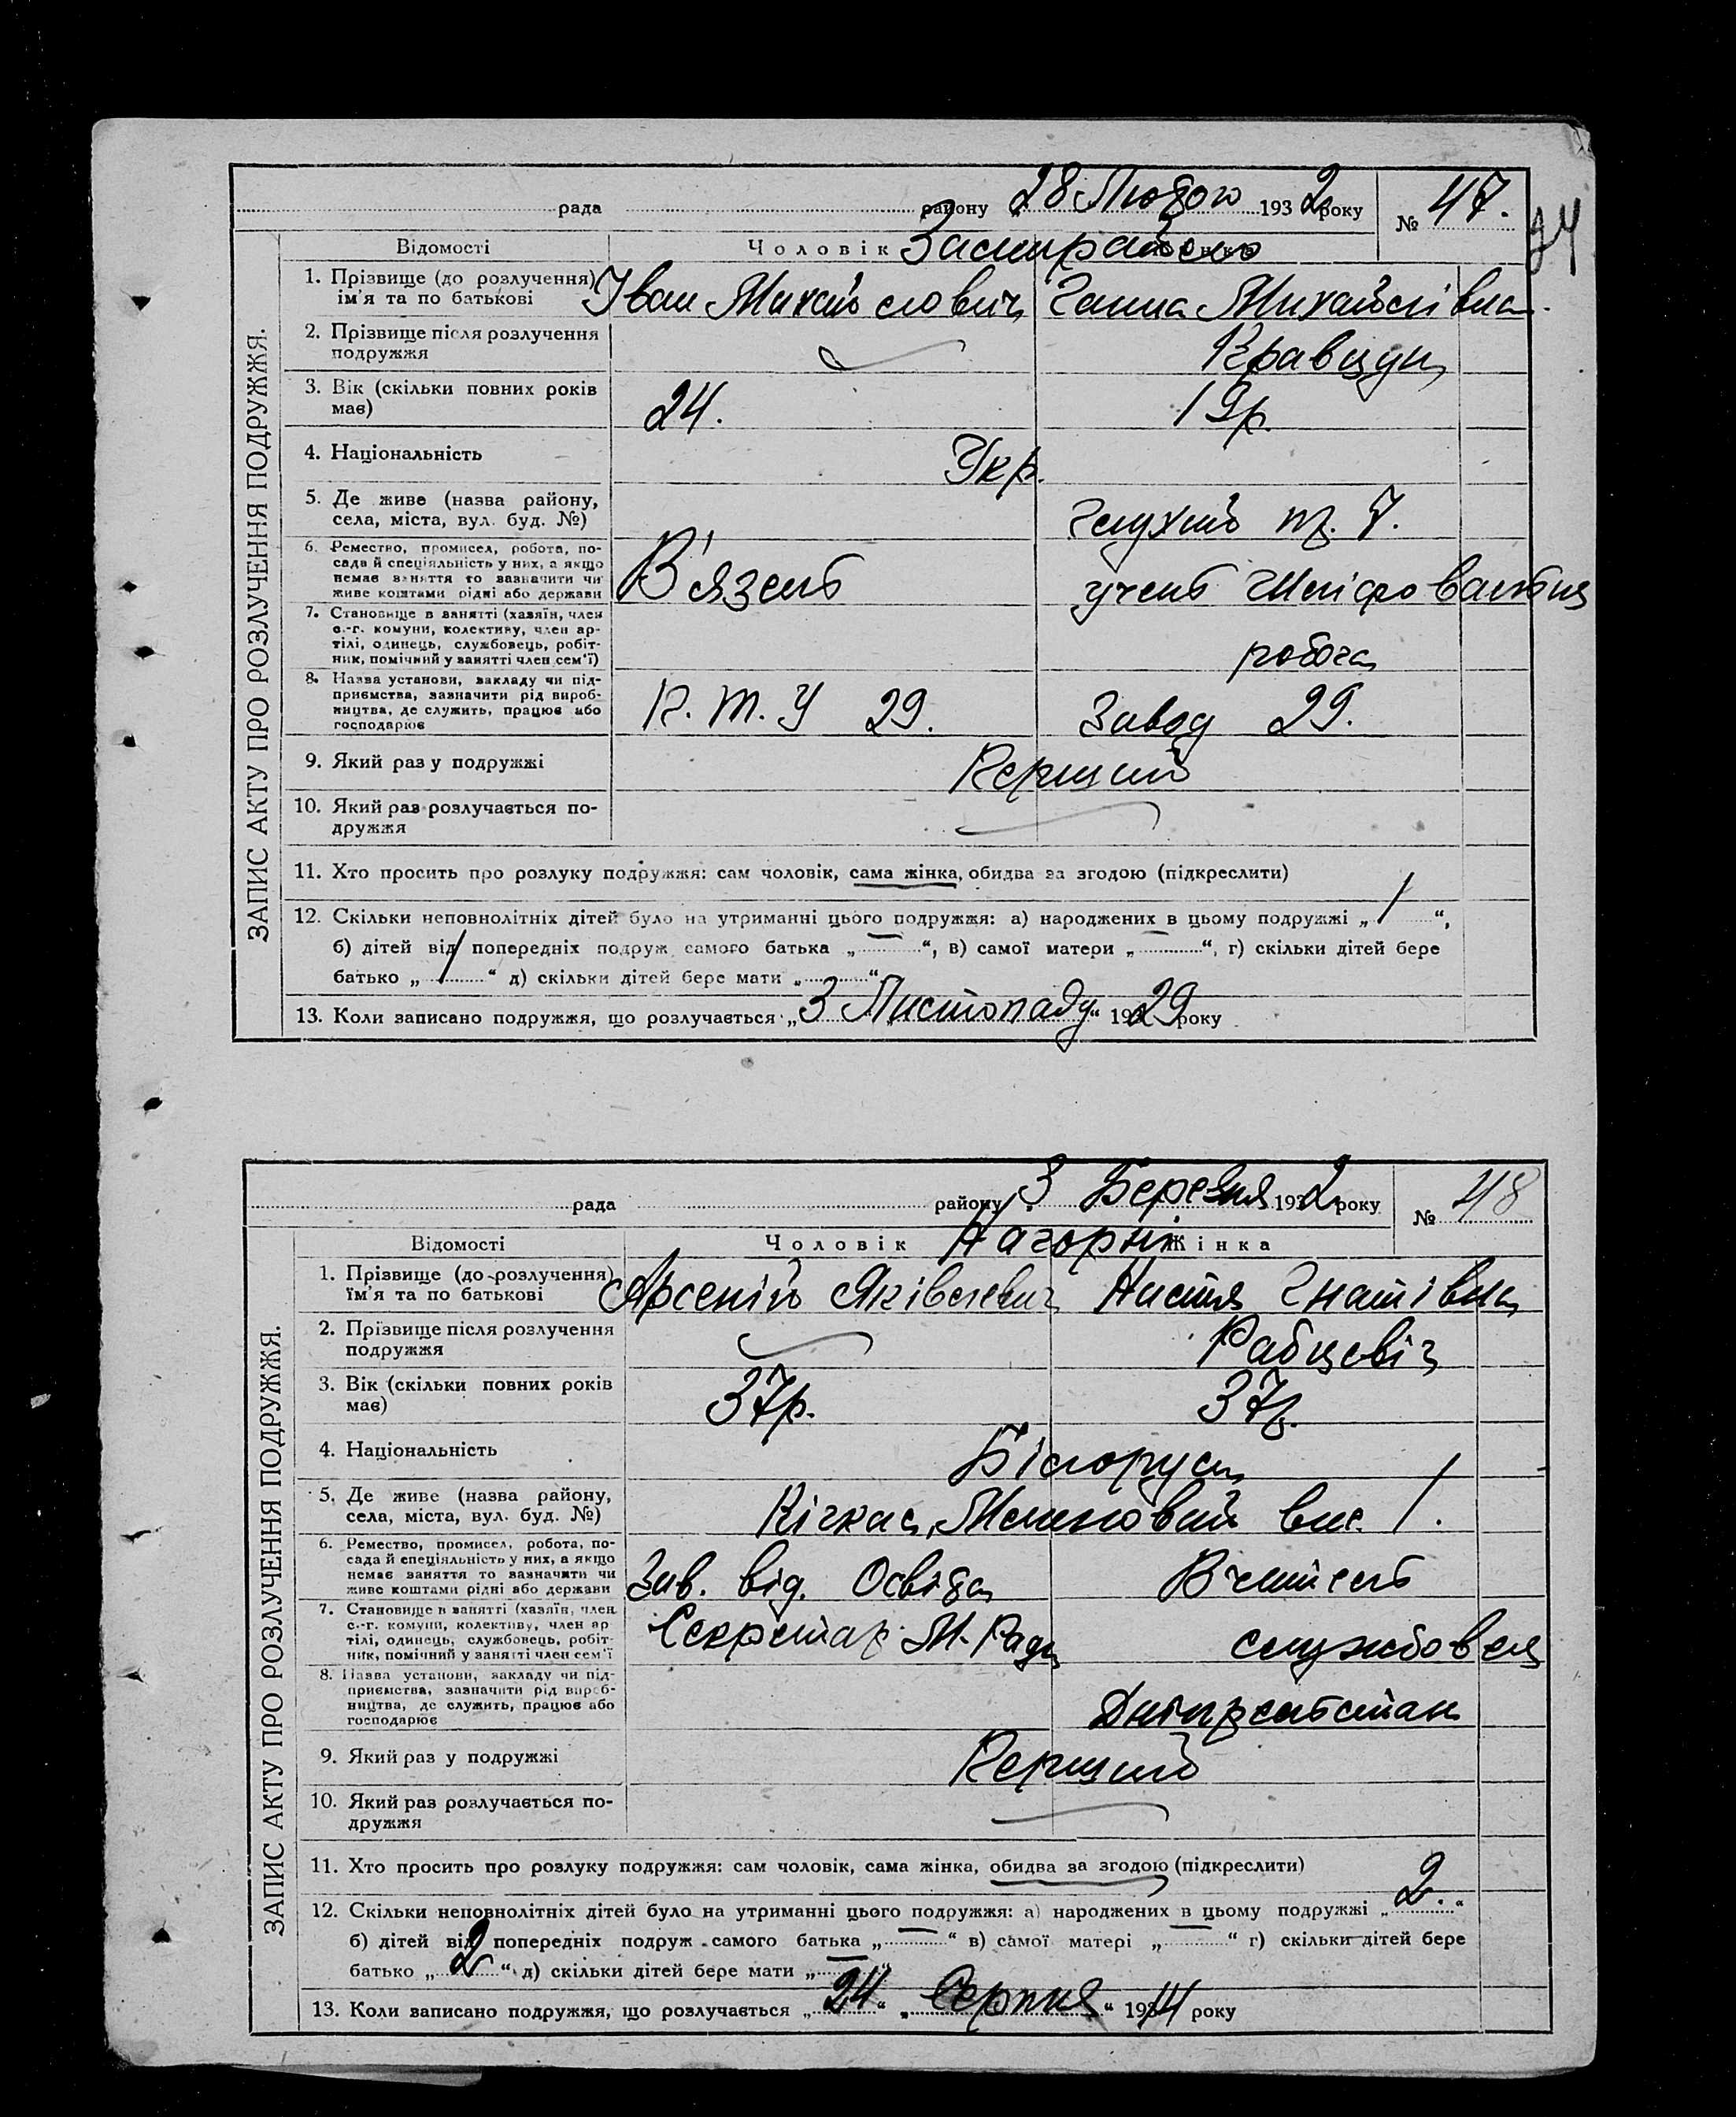 рада району 28 Лютого 1932 року № 47.
34
Відомості Чоловік Жінка
ЗАПИС АКТУ ПРО РОЗЛУЧЕННЯ ПОДРУЖЖЯ.
1. Прізвище (до розлучення)
ім'я та по батькові Іван Михайлович Ганна Михайлівна.
2. Прізвище після розлучення
подружжя Кравцун
3. Вік (скільки повних років
має) 24. 19р.
4. Національність Укр.
5. Де живе (назва району,
села, міста, вул. буд. №) 7.
6. Ремество, промисел, робота, по-
сада й спеціяльність у них, а якщо
немає заняття то зазначити чи
живе коштами рідні або держави В'язень учень
7. Становище в занятті (хазяїн, член
с.-г. комуни, колективу, член ар-
тілі, одинець, службовець, робіт-
ник, помічний у занятті член сем'ї) робоча
8. Назва установи, закладу чи під-
приємства, зазначити рід вироб-
ництва, де служить, працює або
господарює К. Т. У 29. Завод 29.
9. Який раз у подружжі Перший
10. Який раз розлучається по-
дружжя
11. Хто просить про розлуку подружжя: сам чоловік, сама жінка, обидва за згодою (підкреслити)
12. Скільки неповнолітніх дітей було на утриманні цього подружжя: а) народжених в цьому подружжі „ 1 “,
б) дітей від попередніх подруж самого батька „ — “, в) самої матери „ — “, г) скільки дітей бере
батько „ 1 “ д) скільки дітей бере мати „ “
13. Коли записано подружжя, що розлучається „3 Листопаду“ 1929 року
рада району 3 Березня 1932 року № 48
Відомості Чоловік Нагорні Жінка
ЗАПИС АКТУ ПРО РОЗЛУЧЕННЯ ПОДРУЖЖЯ.
1. Прізвище (до розлучення)
ім'я та по батькові Арсеній Яківлевич Настя Гнатівна
2. Прізвище після розлучення
подружжя Рабцевіч
3. Вік (скільки повних років
має) 37р. 37р.
4. Національність Білоруси
5. Де живе (назва району,
села, міста, вул. буд. №) Кічкас, вис. 1.
6. Ремество, промисел, робота, по-
сада й спеціяльність у них, а якщо
немає заняття то зазначити чи
живе коштами рідні або держави Зав. від. Освіта Вчитель
7. Становище в занятті (хазяїн, член
с.-г. комуни, колективу, член ар-
тілі, одинець, службовець, робіт-
ник, помічний у занятті член сем'ї Секретар М. Ради службовец
8. Назва установи, закладу чи під-
приємства, зазначити рід вироб-
ництва, де служить, працює або
господарює
9. Який раз у подружжі Перший
10. Який раз розлучається по-
дружжя
11. Хто просить про розлуку подружжя: сам чоловік, сама жінка, обидва за згодою (підкреслити)
12. Скільки неповнолітніх дітей було на утриманні цього подружжя: а) народжених в цьому подружжі „ 2. “
б) дітей від попередніх подруж самого батька „ — “ в) самої матері „ — “ г) скільки дітей бере
батько „ 2 “ д) скільки дітей бере мати „ — “
13. Коли записано подружжя, що розлучається „24“ „Серпня“ 1914 року